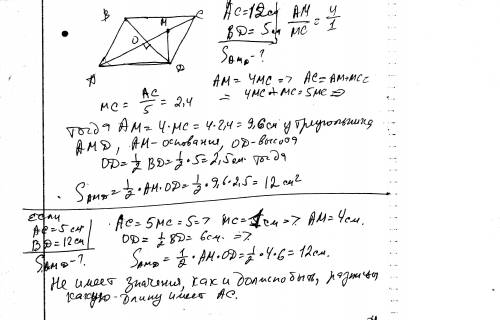 B C M O A D
AC=12см
BD=5см
AM/MC = 4/1
S_AMD-?
AM=4MC => AC=AM+MC=
= 4MC+MC=5MC =>
MC = AC/5 = 2,4
тогда AM=4·MC=4·2,4=9,6см у треугольника
AMD, AM-основания, OD-высота
OD=1/2 BD=1/2·5=2,5см. тогда
S_AMD=1/2·AM·OD=1/2·9,6·2,5=12см²
Если
AC=5см
BD=12см
S_AMD-?
AC=5MC=5=> MC=1см=> AM=4см.
OD=1/2 BD=6см. =>
S_AMD=1/2·AM·OD=1/2·4·6=12см.
Не имеет значения, как и должно быть, разницы
какую длину имеет AC.